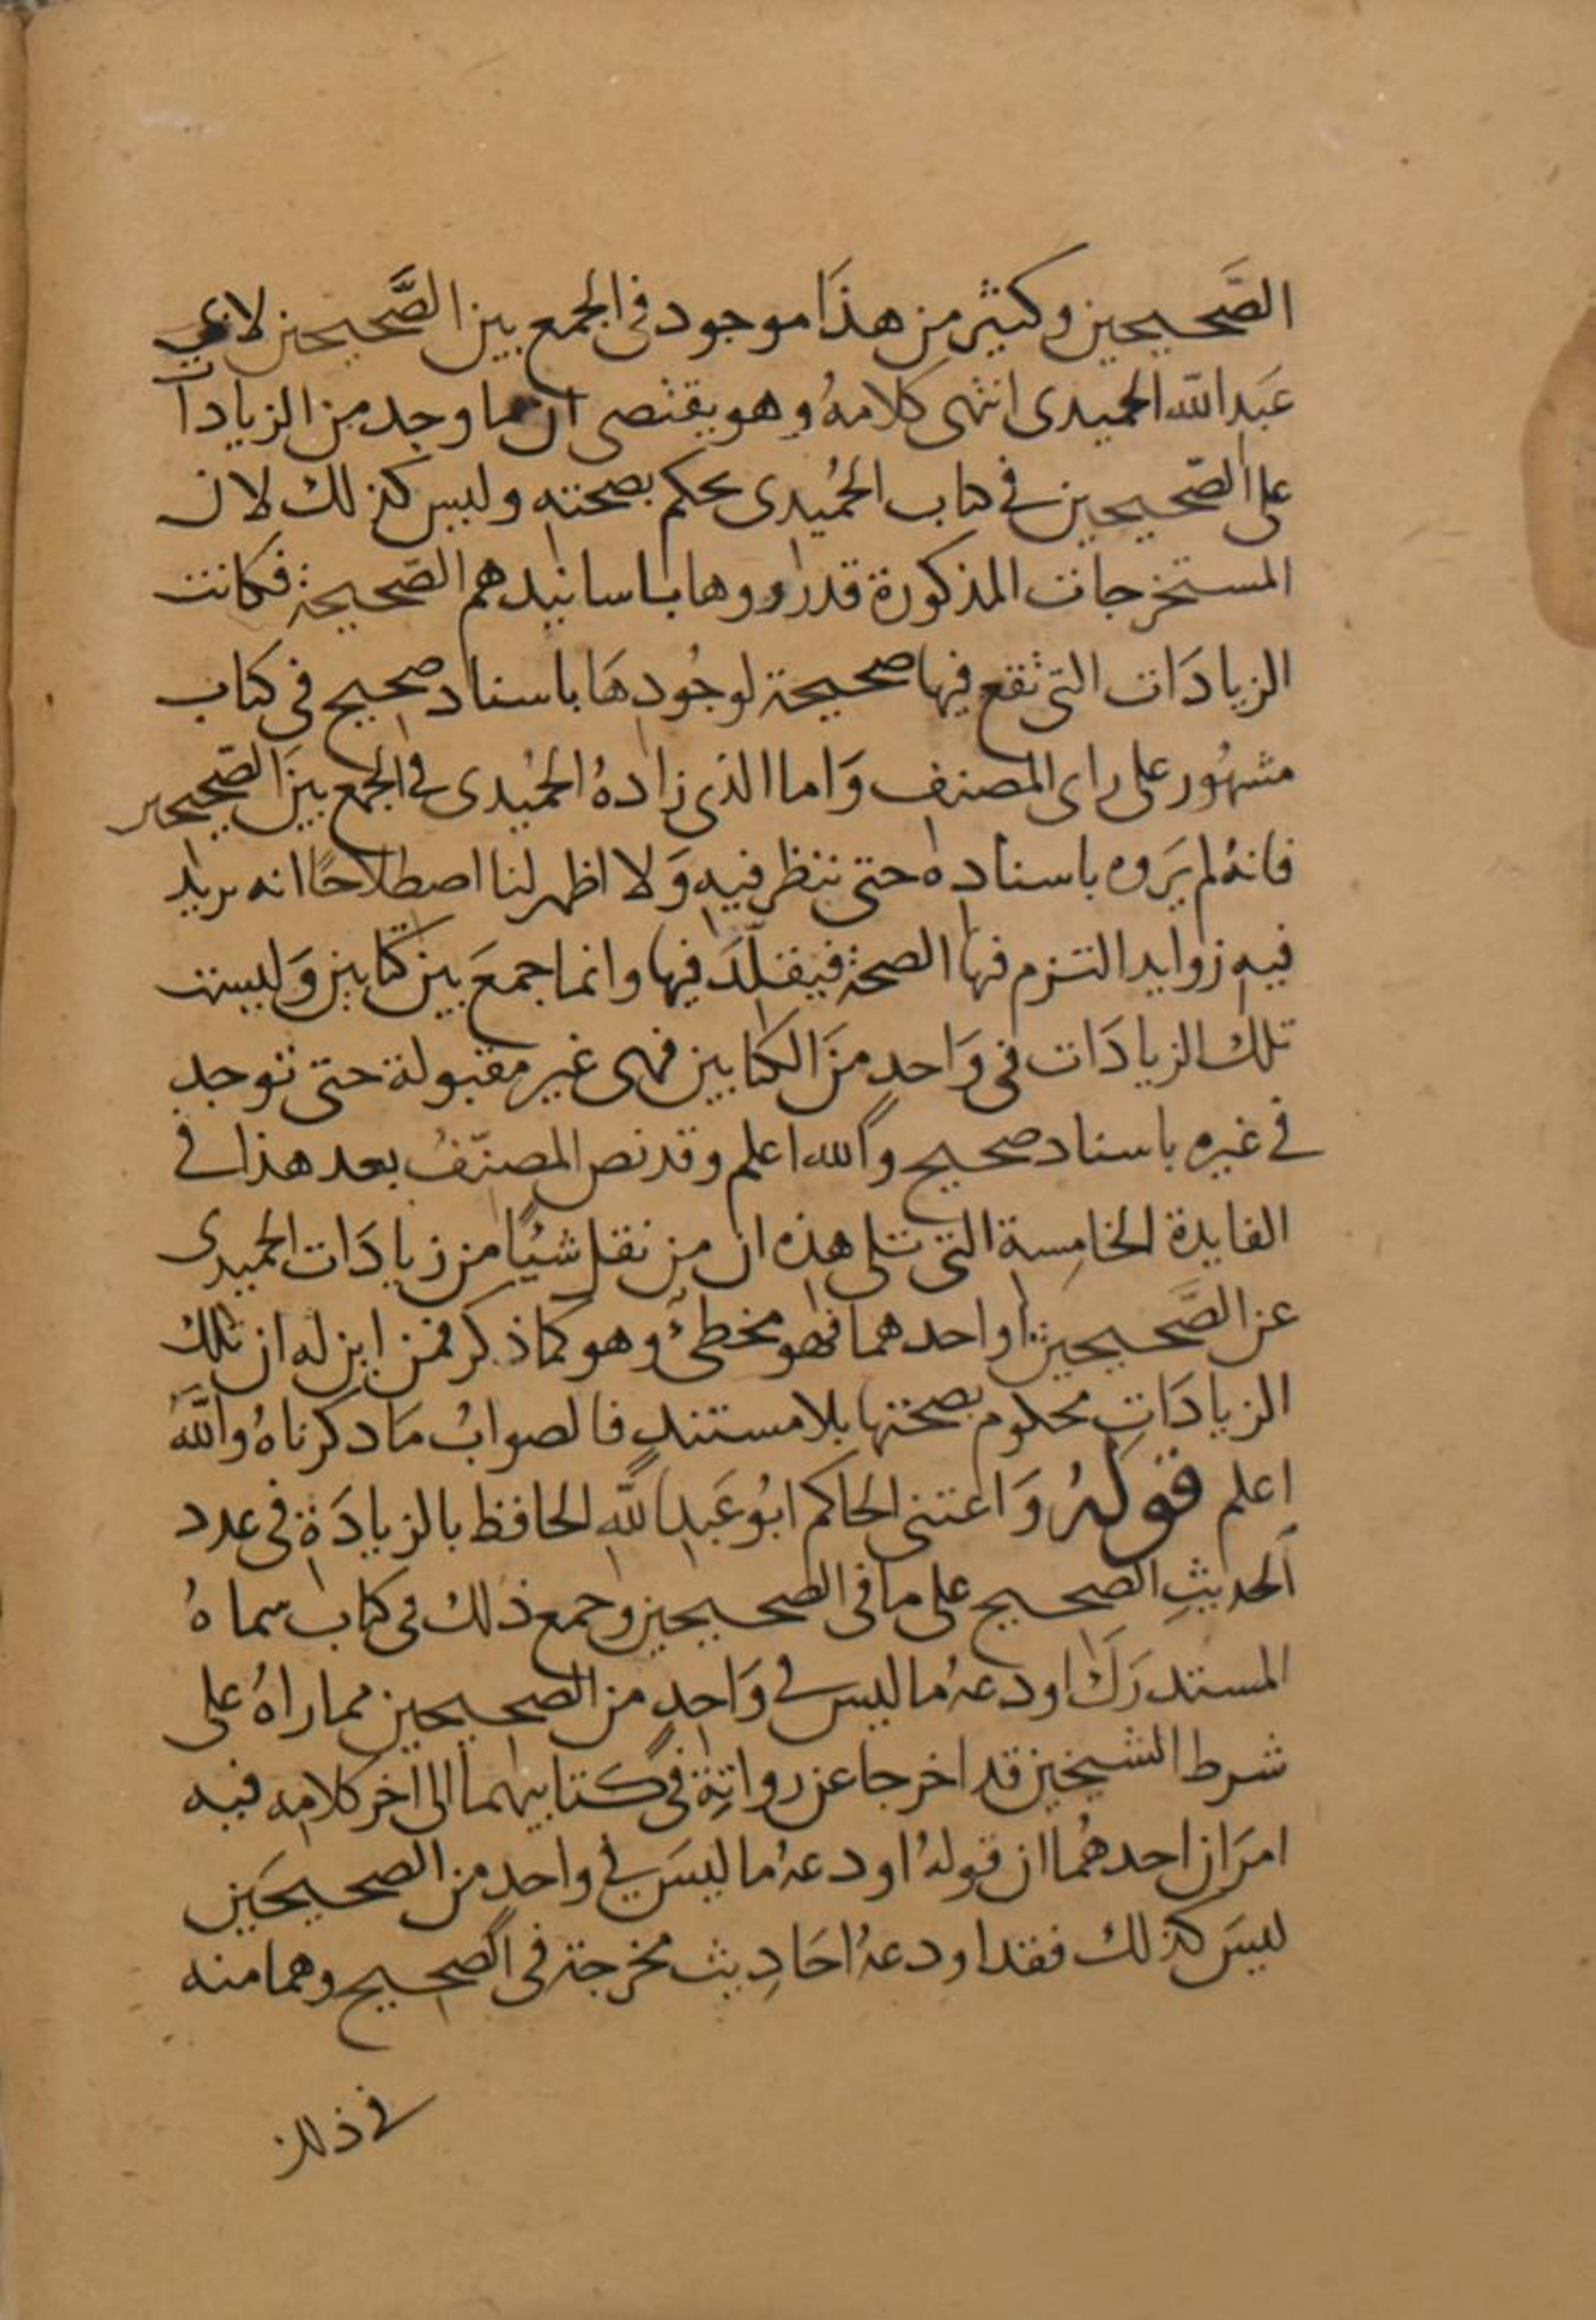 الصَّحيحين وكثير من هذَا موجود في الجمع بين الصَّحيحين لابي
عَبد الله الحميدى انتهى كلامهُ وهو يقتضى ان ما وجد من الزيادات
على الصّحيحين في كتاب الحُميدى يحكم بصحته وليس كذلك لان
المستخرجات المذكورة قد رووها باسانيدهم الصّحيحة فكانت
الزيادَات التي تقع فيها صحيحة لوجُودهَا باسناد صحيح في كتاب
مشهُور على راى المصنف وَاما الذى زادهُ الحمُيدى في الجمع بينَ الصّحيحين
فانهُ لم يَروه باسناده حتى ننظر فيه وَلا اظهر لنا اصطلاحًا انه يريد
فيه زوايد التزم فيها الصحة فيقلّدَ فيها وانما جمعَ بين كتابين وَليست
تلك الزيادَات في وَاحدٍ منَ الكتابين فهى غير مقبولة حتى توجد
في غيره باسناد صحيح والله اعلم وقد نص المصنّفُ بعد هذا في
الفايدة الخامِسة التي تلى هذه ان من نقل شيئًا من زيادَات الحميدى
عن الصَّحيحين او احدهما فهو مخطئ وهو كما ذكر فمن اين له ان تلك
الزيادَاتِ محكوم بصحتها بلا مستندٍ فالصوابُ مَا ذكرناهُ واللهُ
اعلم قولهُ وَاعتنى الحاكم ابُو عَبد اللهِ الحافظ بالزيادَة في عدد
الحديثِ الصحيح على ما في الصحيحين وجمع ذلك في كتاب سماهُ
المستدرَك اودعهُ ما ليس في وَاحدٍ من الصحيحين مما راهُ على
شرط الشيخين قد اخرجا عن رواتهِ في كتابيهما الى اخر كلامه فيه
امرَان احدهُما ان قولهُ اودعهُ ما ليسَ في واحدٍ من الصحيحَين
ليسَ كذلك فقد اودعهُ احَادِيث مخرجة في الصحيح وهما منه
في ذلك